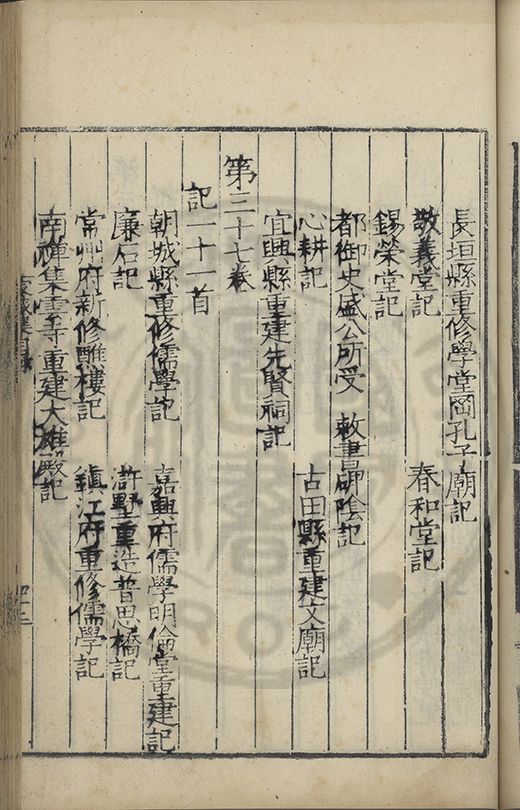 長垣縣重修學堂岡孔子廟記
敬義堂記　春和堂記
錫榮堂記
都御史盛公所受　敕書碑陰記
心耕記　古田縣重建文廟記
宜興縣重建先賢祠記
第三十七卷
記一十一首
朝城縣重修儒學記　嘉興府儒學明倫堂重建記
廉石記　滸墅重造普思橋記
常州府新修譙樓記　鎮江府重修儒學記
南禪集雲寺重建大雄殿記